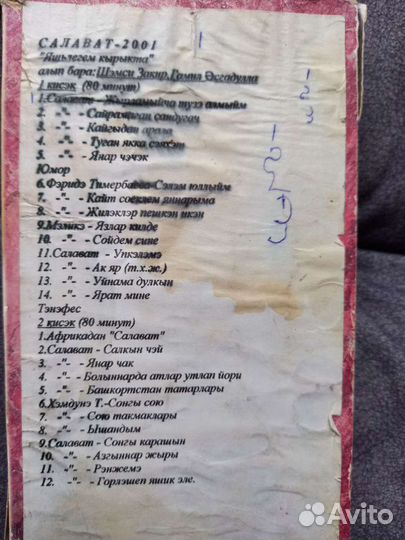 САЛАВАТ-2001
"Яшьлегем кырыкта"
алып бара: Шэмси Закир, Гамил Эсгадулла
1 кисэк (80 минут)
1.Салават - Жырламыйча тузэ алмыйм
2. -"- - Сайрамаган сандугач
3. -"- - Кайгыдан арала
4. -"- - Туган якка сэяхэт
5. -"- - Янар чэчэк
Юмор
6.Фэридэ Тимербаева-Сэлэм юллыйм
7. -"- - Кайт соеклем яннарыма
8. -"- - Жилэклэр пешкэн икэн
9.Мэликэ - Язлар килде
10. -"- - Сойдем сине
11.Салават - Упкэлэмэ
12. -"- - Ак яр (т.х.ж.)
13. -"- - Уйнама дулкын
14. -"- - Ярат мине
Тэнэфес
2 кисэк (80 минут)
1.Африкадан "Салават"
2.Салават - Салкын чэй
3. -"- - Янар чак
4. -"- - Болыннарда атлар утлап йори
5. -"- - Башкортстан татарлары
6.Хэмдунэ Т.-Сонгы сою
7. -"- - Сою такмаклары
8. -"- - Ышандым
9.Салават - Сонгы карашын
10. -"- - Азгыннар жыры
11. -"- - Рэнжемэ
12. -"- - Горлэшеп яшик эле.
Avito